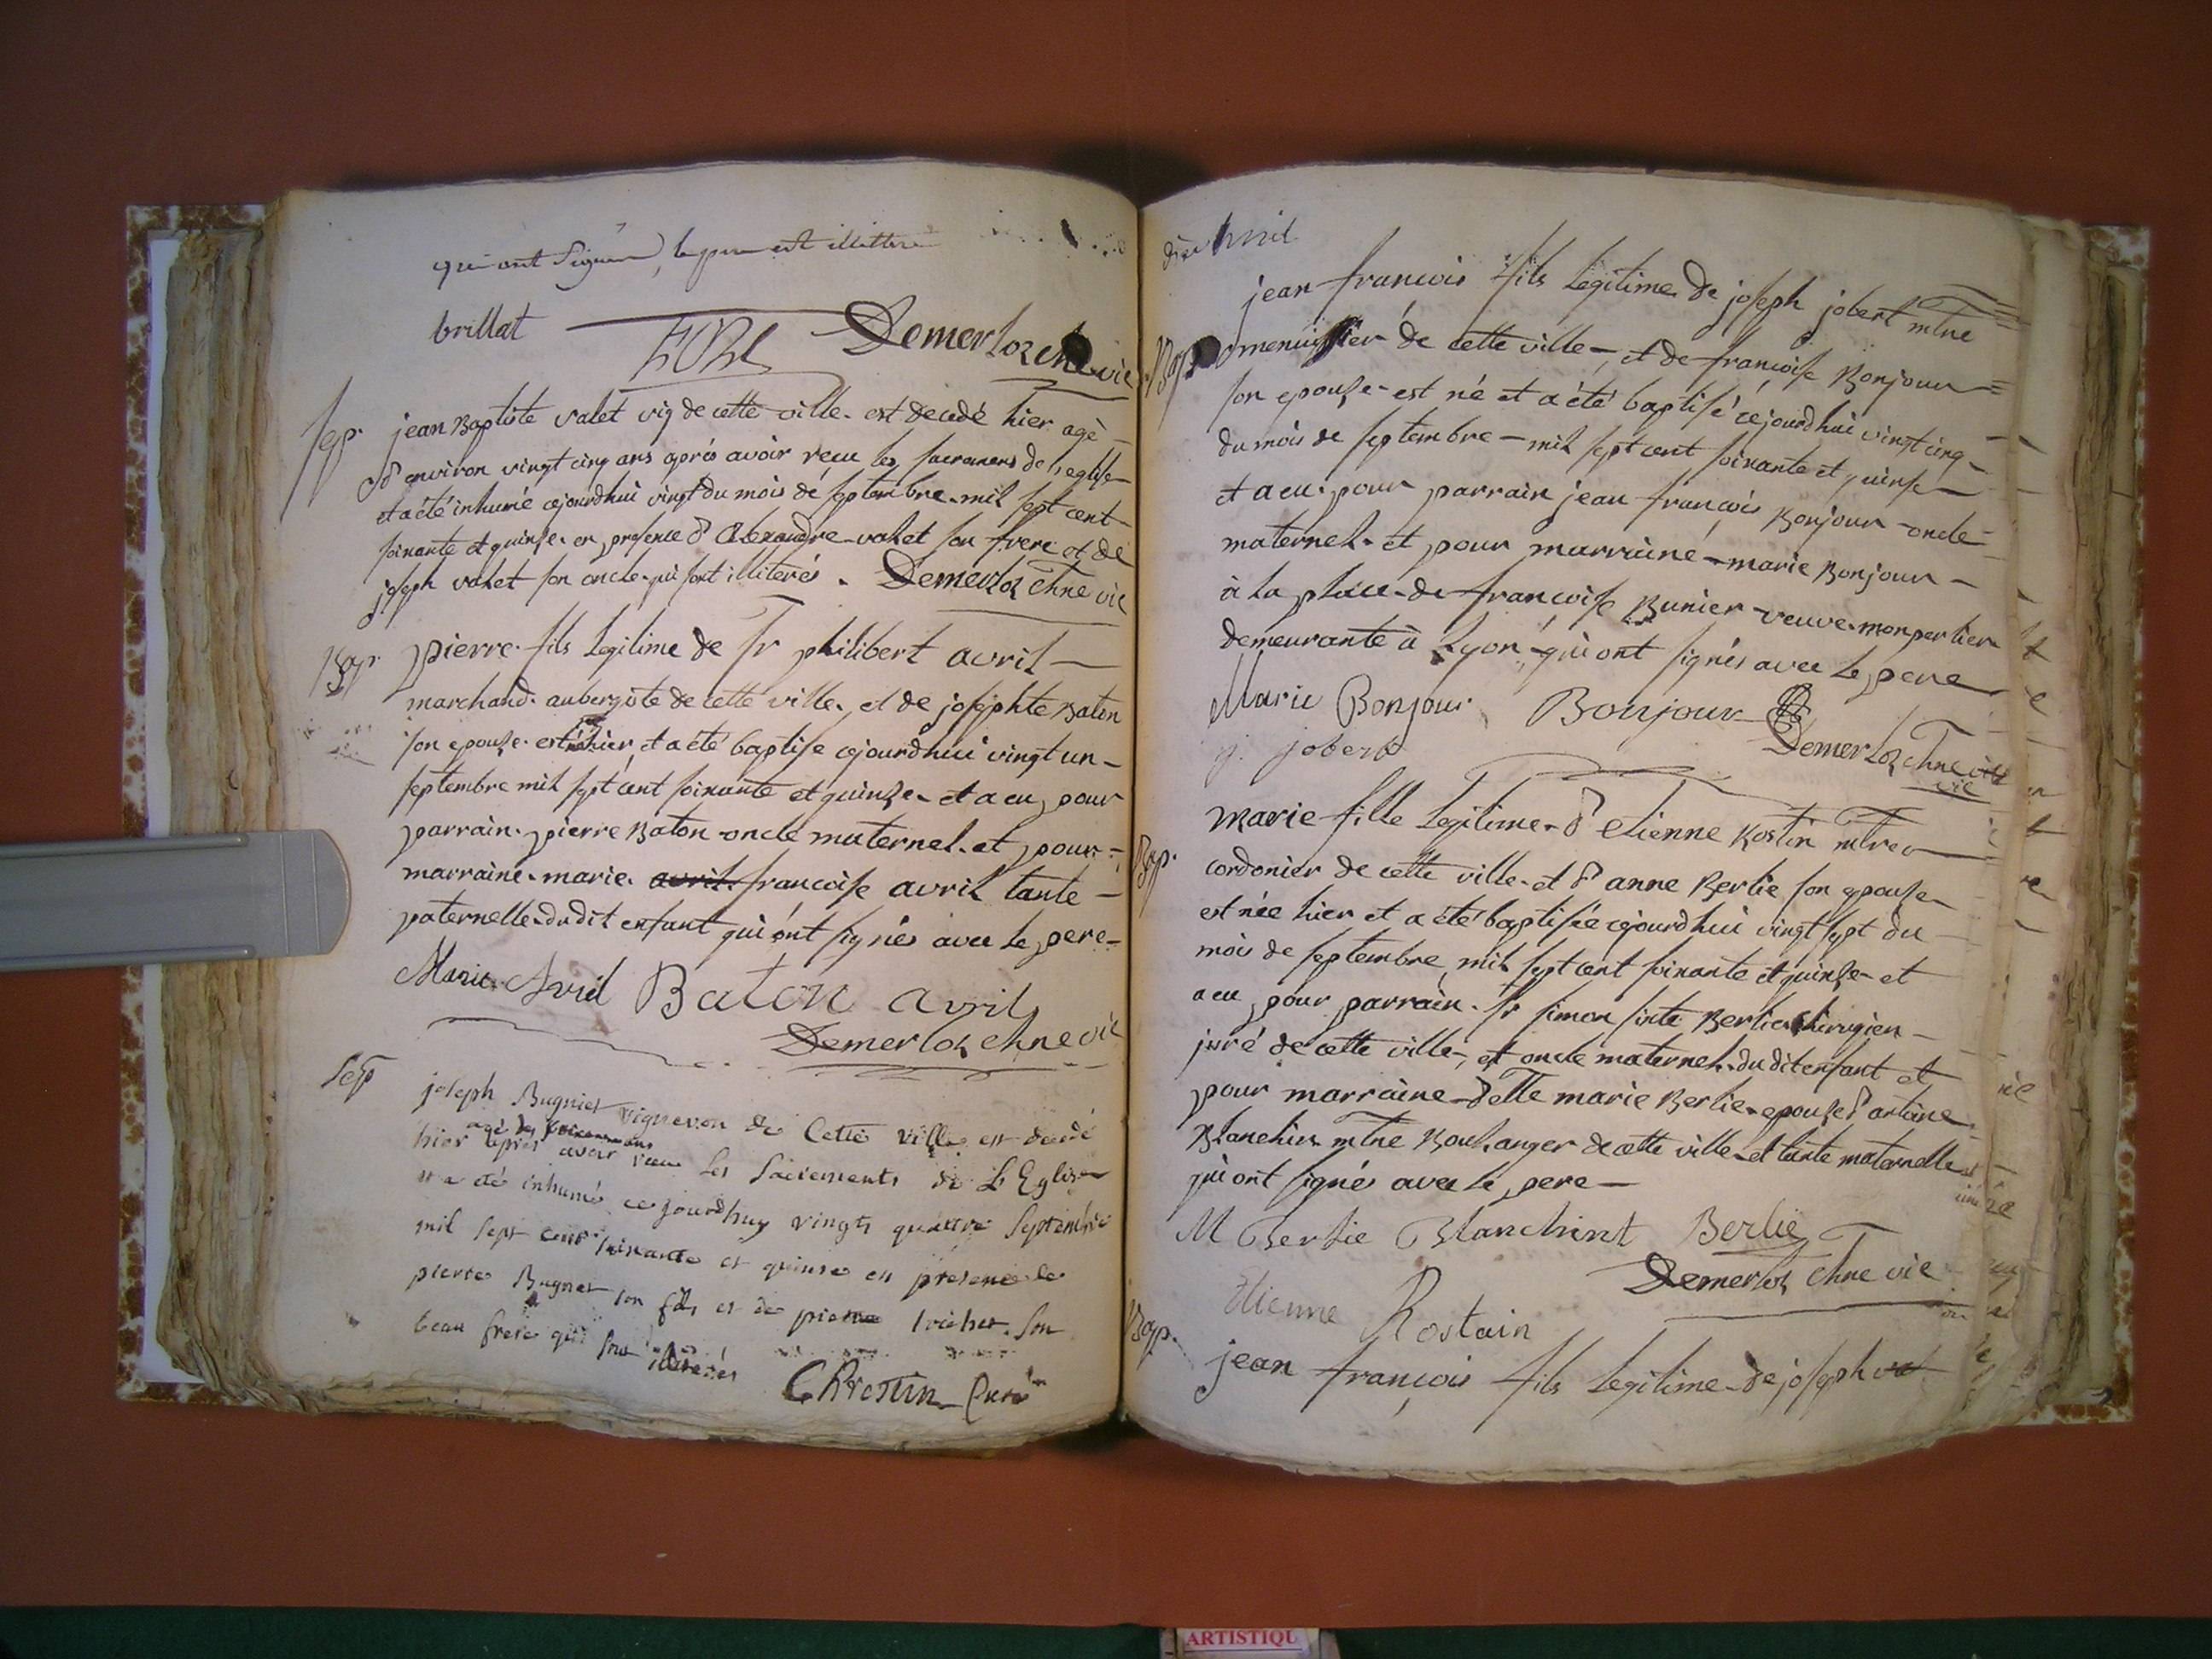 qui ont signés, le pere est illittere
brillat Demerloz chne vic
sep. jean Baptiste valet vig de cette ville. est decedé hier agé
d'environ vingt cinq ans aprés avoir recu les sacremens de l'eglise
et a été inhumé cejourdhui vingt du mois de septembre mil sept cent
soixante et quinse. en presence d'Alexandre valet son frere et de
joseph valet son oncle qui sont illiterés. Demerloz chne vic
Bap. pierre fils legitime de sr philibert avril
marchand aubergiste de cette ville, et de josephte Baton
son epouse. est né hier, et a été baptise cejourdhui vingt un
septembre mil sept cent soixante et quinse. et a eu pour
parrain. pierre Baton oncle maternel. et pour
marraine. marie. avril francoise avril tante
paternelle dudit enfant qui ont signés avec le pere
Marie Avril Baton avril
Demerloz chne vic
Sep joseph Bugniet vigneron de Cette ville est decedé
agé de soixante ans
hier apres avoir recu les sacrements de L'Eglise
et a été inhumé ce jourdhuy vingts quattre septembre
mil sept cent soixante et quinse en présence de
pierre Bugnet son fils et de pierre son
beau frere qui sont illiterés
Chrestin Curé
avril
jean francois fils legitime de joseph jobert mtre
Bap. menuisier de cette ville, et de francoise Bonjour
son epouse. est né et a été baptisé cejourdhui vingt cinq
du mois de septembre mil sept cent soixante et quinse
et a eu pour parrain jean francois Bonjour oncle
maternel. et pour marraine marie Bonjour
à la place de francoise Bunier veuve monperlier
demeurante à Lyon, qui ont signés avec le pere
Marie Bonjour Bonjour
j. jobert Demerloz chne vic
vic
Bap. marie fille legitime d'etienne Rostin mtre
cordonier de cette ville. et d'anne Berlie son epouse
est née hier et a été baptisée cejourdhui vingt sept du
mois de septembre mil sept cent soixante et quinse et
a eu pour parrain. sr simon sixte Berlie chirugien
juré de cette ville, et oncle maternel. dudit enfant et
pour marraine delle marie Berlie. epouse d'antoine
Blanchin mtre Boulanger de cette ville et tante maternelle
qui ont signés avec le pere
M Berlie Blanchint Berlie
Demerloz chne vic
Etienne Rostain
Bap. jean françois fils legitime de joseph
ARTISTIQU